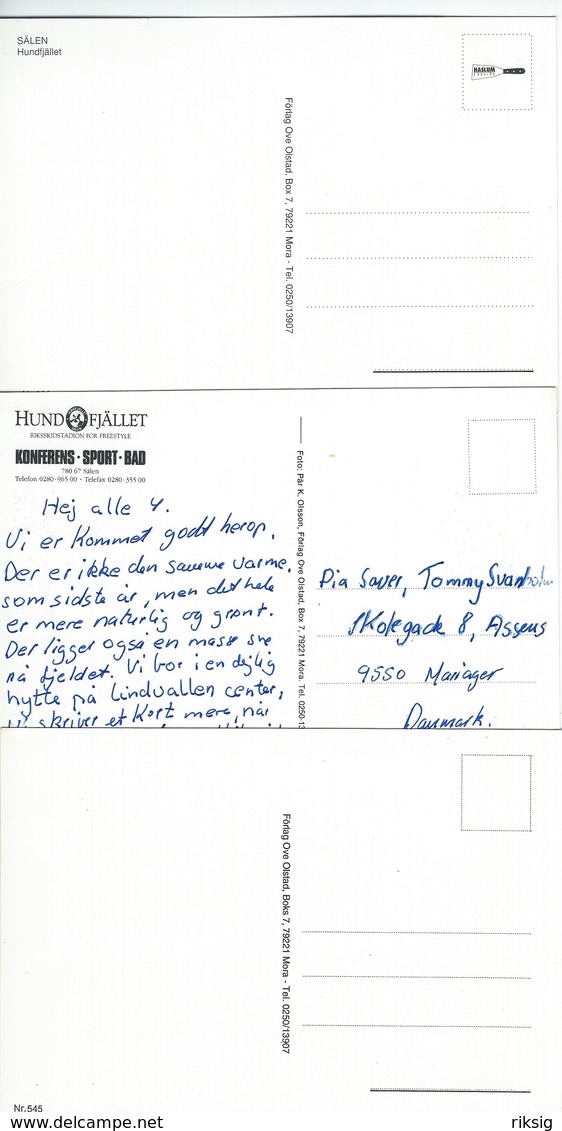 SÄLEN
Hundfjället
HASLUM
Förlag Ove Olstad, Box 7, 79221 Mora - Tel. 0250/13907
HUNDFJÄLLET
RIKSSKIDSTADION FOR FREESTYLE
KONFERENS · SPORT · BAD
780 67 Sälen
Telefon 0280-965 00 · Telefax 0280-355 00
Hej alle 4.
Vi er kommet godt herop.
Der er ikke den samme varme,
som sidste år, men det hele
er mere naturlig og grønt.
Der ligger også en masse sne
på fjeldet. Vi bor i en dejlig
hytte på Lindvallen center,
Vi skriver et kort mere, når
Foto: Pär K. Olsson, Förlag Ove Olstad, Box 7, 79221 Mora. Tel. 0250-13
Pia Saver, Tommy Svanholm
Skolegade 8, Assens
9550 Mariager
Danmark.
Förlag Ove Olstad, Boks 7, 79221 Mora - Tel. 0250/13907
Nr.545
riksig
www.delcampe.net